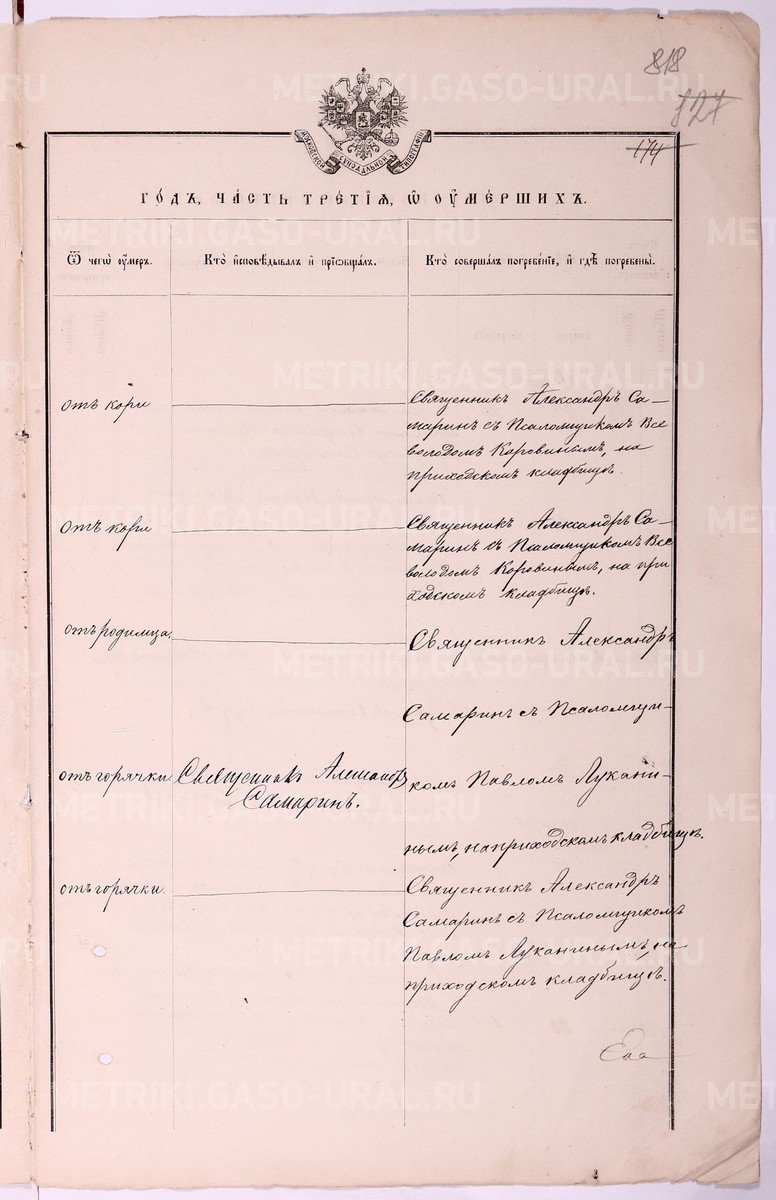 818
827
174
МОСКОВСКОЙ СѴНОДАЛЬНОЙ ТИПОГРАФІИ
ГО́ДЪ, ЧА́СТЬ ТРЕ́ТІѦ, Ѡ҆ ОУ҆МЕ́РШИХЪ.
Ѿ чегѡ̀ оу҆́меръ.
Кто̀ и҆сповѣ́дывалъ и҆ прїѡбща́лъ.
Кто̀ соверша́лъ погребе́нїе, и҆ гдѣ̀ погребены̀.
отъ кори
Священникъ Александръ Са-
маринъ съ Псаломщикомъ Все
володомъ Коровинымъ, на
приходскомъ кладбищѣ.
отъ кори
Священникъ Александръ Са-
маринъ съ Псаломщикомъ Все
володомъ Коровинымъ, на при
ходскомъ кладбищѣ.
отъ родимца.
Священникъ Александръ
Самаринъ съ Псаломщи-
отъ горячки
Священникъ Александръ
Самаринъ.
комъ Павломъ Лукани-
нымъ, на приходскомъ кладбищѣ.
отъ горячки.
Священникъ Александръ
Самаринъ съ Псаломщикомъ
Павломъ Луканинымъ, на
приходскомъ кладбищѣ.
METRIKI.GASO-URAL.RU